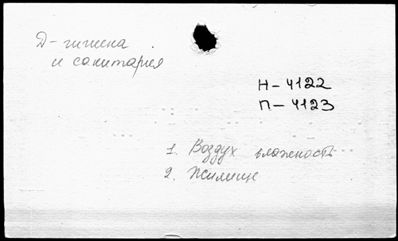 Д-гигиена
и санитария
Н-4122
П-4123
1. Воздух влажность
2. Жилище